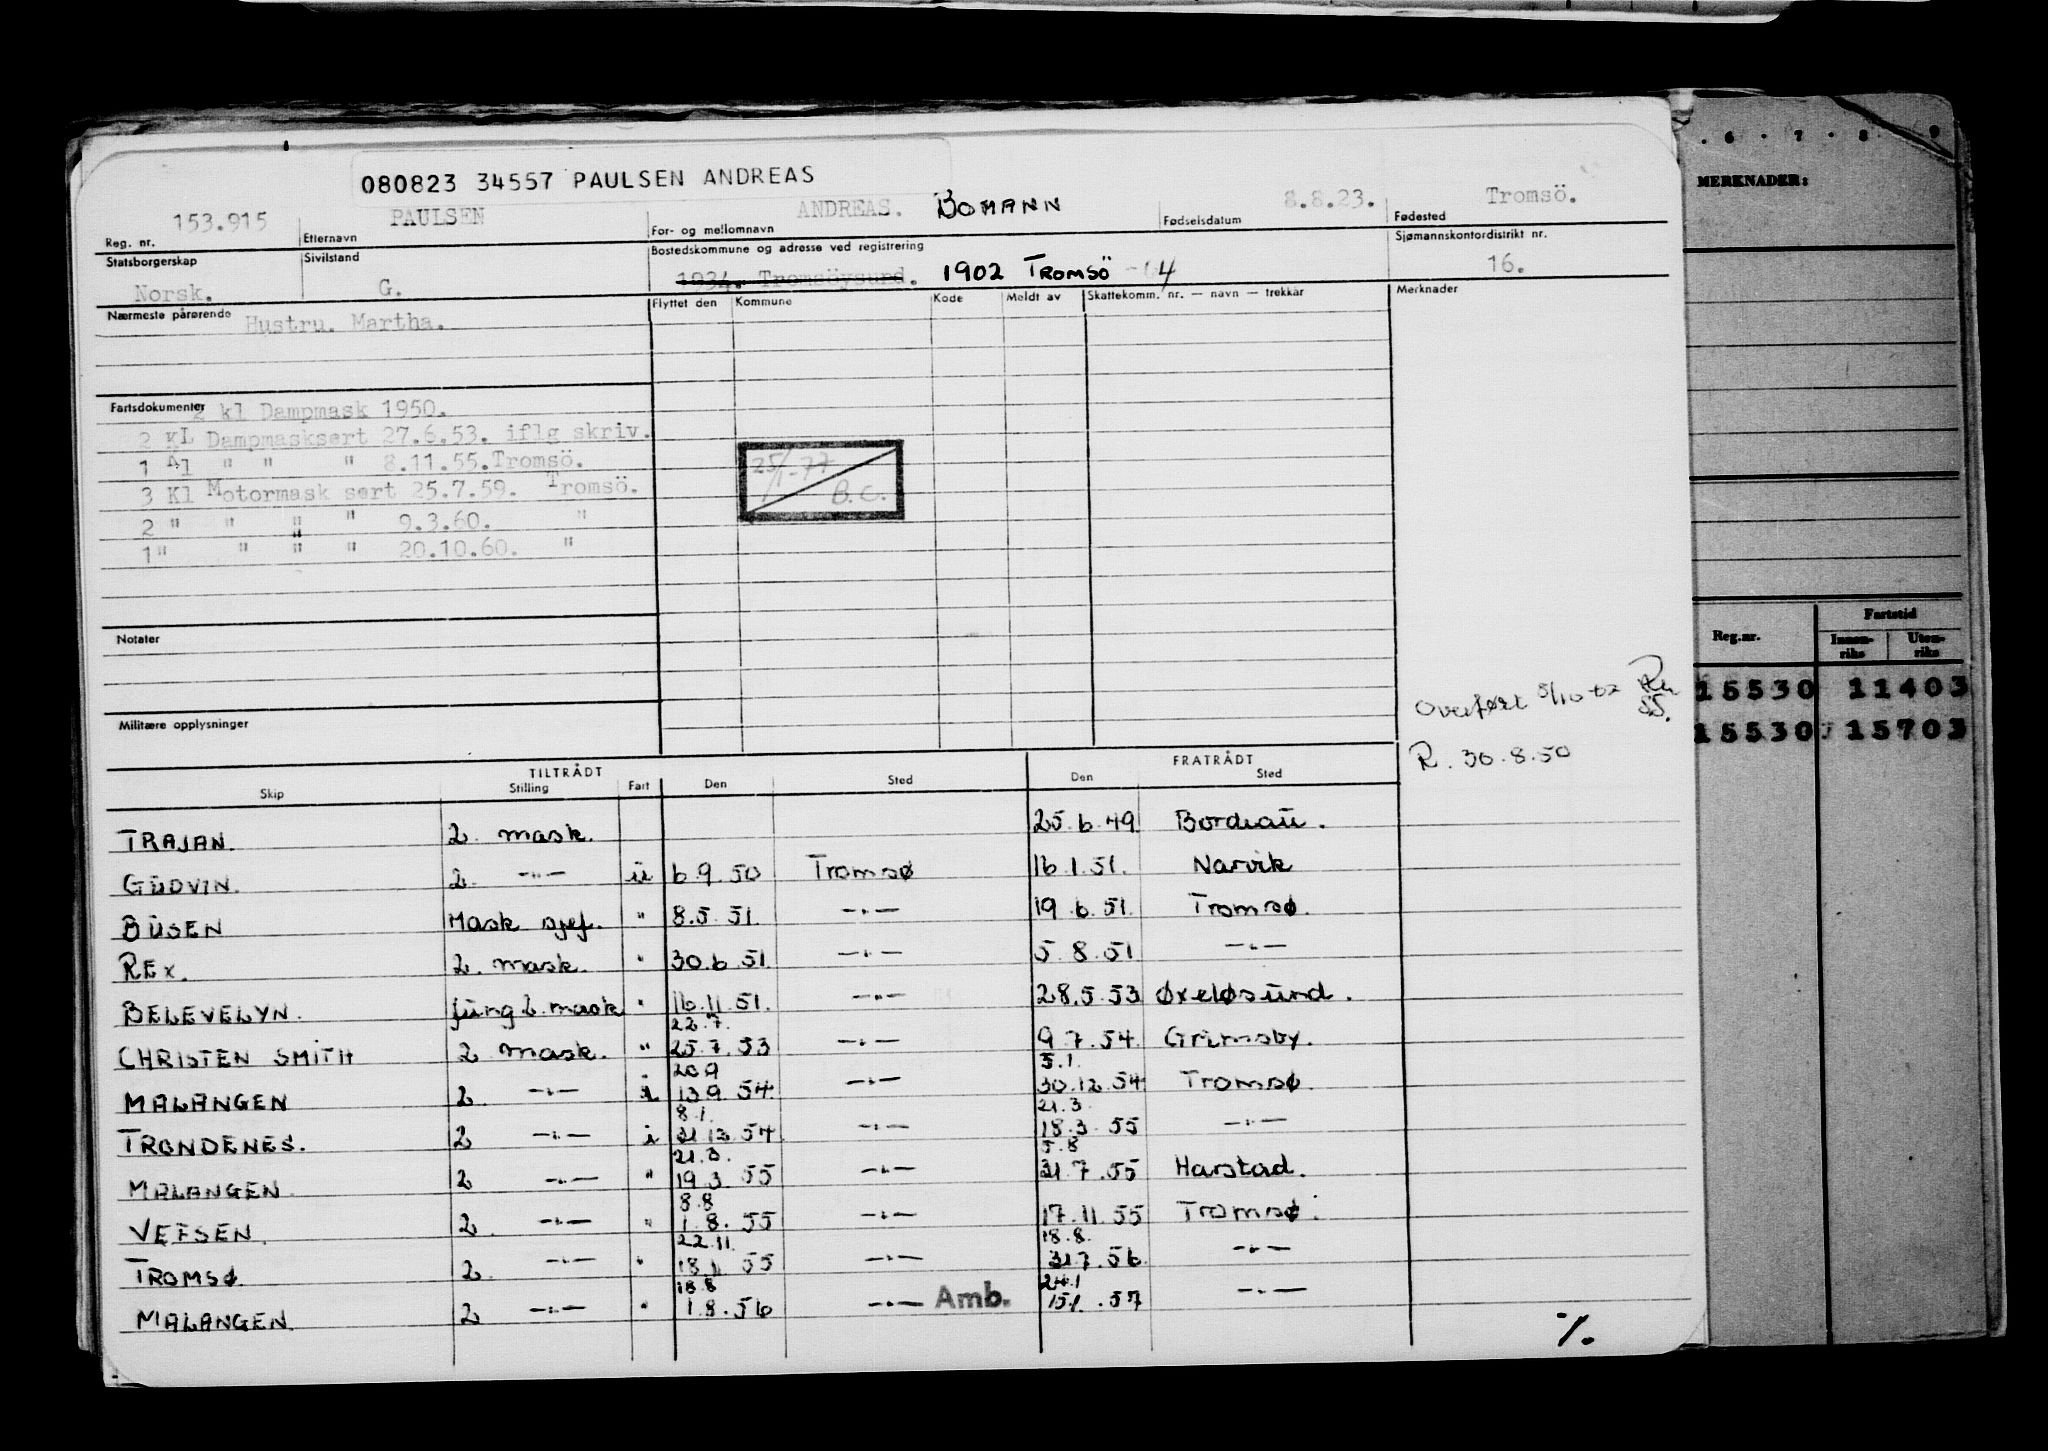 080823 34557 PAULSEN ANDREAS
153.915 PAULSEN ANDREAS. BOMANN 8.8.23. Tromsö.
Reg. nr. Etternavn For- og mellomnavn Fødselsdatum Fødested
Statsborgerskap Sivilstand Bostedskommune og adresse ved registrering Sjømannskontordistrikt nr.
Norsk. G. 1934. Tromsöysund. 1902 TROMSÖ 16.
Nærmeste pårørende Hustru. Martha. Flyttet den Kommune Kode Meldt av Skattekomm. nr. — navn — trekkår Merknader
Fartsdokumenter 2 kl Dampmask 1950.
2 KL Dampmasksert 27.6.53. iflg skriv.
1 Kl " " " 8.11.55. Tromsö.
3 Kl Motormask sert 25.7.59. Tromsö.
2 " " " " 9.3.60. "
1 " " " " 20.10.60. "
25/1-77
B.C.
Notater
Militære opplysninger
Overført 5/10-62
R. 30.8.50
TILTRÅDT FRATRÅDT
Skip Stilling Fart Den Sted Den Sted
TRAJAN. 2. mask. 25.6.49. Bordeau.
GUDVIN. 2. —"— ü 6.9.50 Tromsø 16.1.51. Narvik
BUSEN Mask sjef. " 8.5.51. —"— 19.6.51. Tromsø.
REX. 2. mask. " 30.6.51. —"— 5.8.51 —"—
BELEVELYN. fung 2. mask " 16.11.51. —"— 28.5.53 Øxeløsund.
22.7.
CHRISTEN SMITH 2 mask. " 25.7.53 —"— 9.7.54. Grimsby.
20.9 5.1.
MALANGEN 2. —"— i 13.9.54. —"— 30.12.54 Tromsø.
8.1. 21.3.
TRONDENES. 2 —"— i 31.12.54 —"— 18.3.55 —"—
21.3. 5.8
MALANGEN. 2 —"— " 19.3.55 —"— 31.7.55 Harstad.
8.8
VEFSEN. 2. —"— " 1.8.55 —"— 17.11.55 Tromsø.
22.11. 18.8.
TROMSØ. 2. —"— " 18.11.55 —"— 31.7.56. —"—
18.8 24.1
MALANGEN. 2 —"— " 1.8.56 —"— Amb. 15.1.57 —"—
·/.
. 6 . 7 . 8 . 9
MERKNADER:
Fartstid
Reg.nr. Innenriks Utenriks
15530 11403
15530 15703